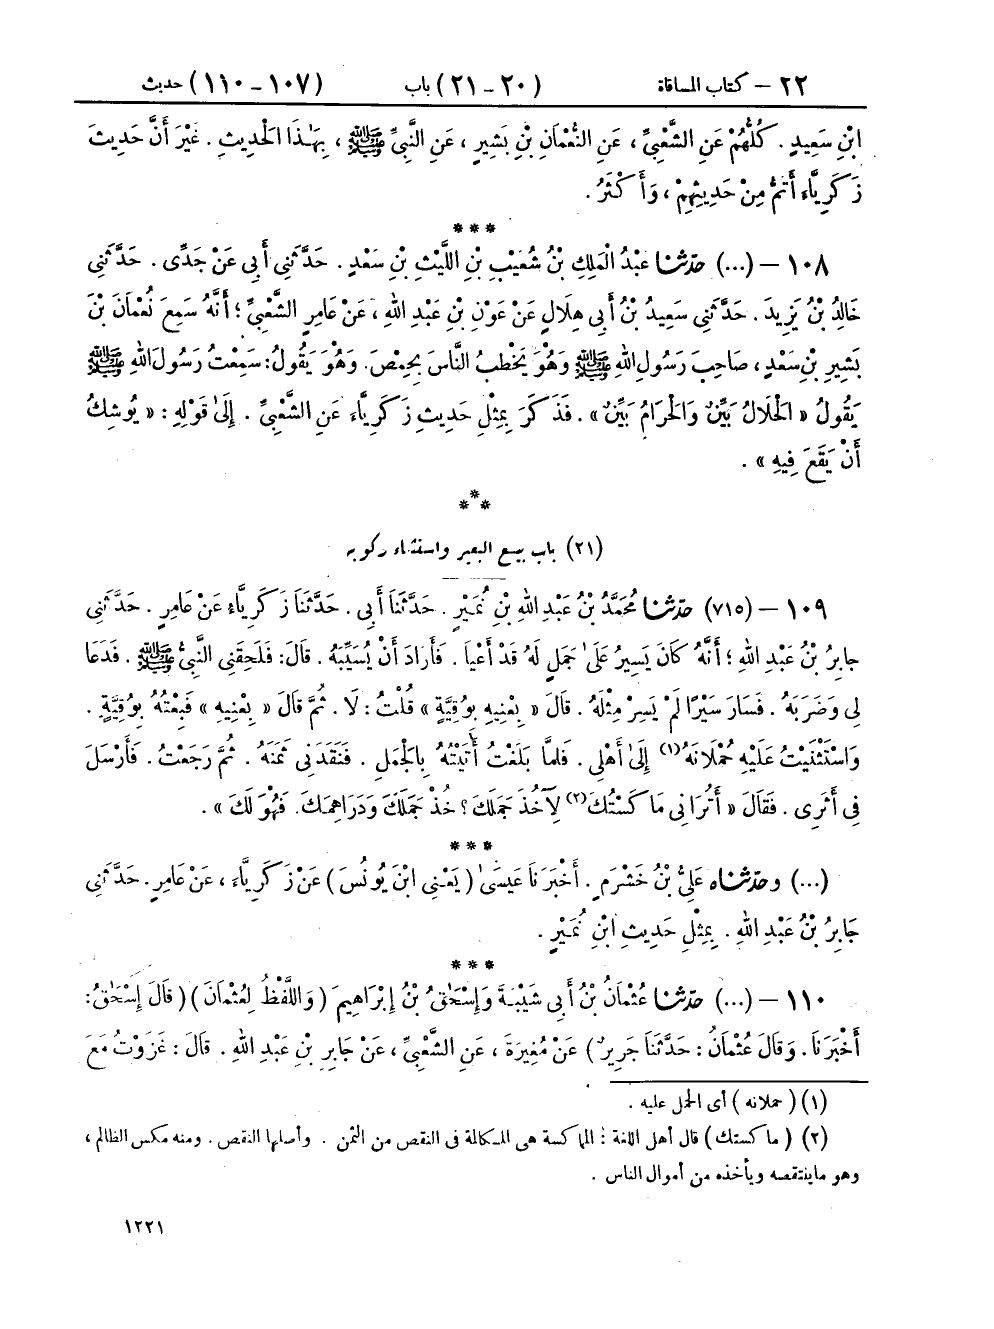 ٢٢ – كتاب المساقاة (٢٠ - ٢١) باب (١٠٧ - ١١٠) حديث
ابْنِ سَعِيدٍ . كُلُّهُمْ عَنِ الشَّعْبِيِّ ، عَنِ النُّعْمَانِ بْنِ بَشِيرٍ ، عَنِ النَّبِيِّ ﷺ ، بِهَٰذَا الْحَدِيثِ . غَيْرَ أَنَّ حَدِيثَ
زَكَرِيَّاءَ أَتَمُّ مِنْ حَدِيثِهِمْ ، وَأَكْثَرُ .
* * *
١٠٨ – (...) حدّثنا عَبْدُ الْمَلِكِ بْنُ شُعَيْبِ بْنِ اللَّيْثِ بْنِ سَعْدٍ . حَدَّثَنِي أَبِي عَنْ جَدِّي . حَدَّثَنِي
خَالِدُ بْنُ يَزِيدَ . حَدَّثَنِي سَعِيدُ بْنُ أَبِي هِلَالٍ عَنْ عَوْنِ بْنِ عَبْدِ اللهِ ، عَنْ عَامِرٍ الشَّعْبِيِّ ؛ أَنَّهُ سَمِعَ نُعْمَانَ بْنَ
بَشِيرِ بْنِ سَعْدٍ ، صَاحِبَ رَسُولِ اللهِ ﷺ وَهُوَ يَخْطُبُ النَّاسَ بِحِمْصَ. وَهُوَ يَقُولُ: سَمِعْتُ رَسُولَ اللهِ ﷺ
يَقُولُ « الْحَلَالُ بَيِّنٌ وَالْحَرَامُ بَيِّنٌ » . فَذَكَرَ بِمِثْلِ حَدِيثِ زَكَرِيَّاءَ عَنِ الشَّعْبِيِّ . إِلَىٰ قَوْلِهِ : « يُوشِكُ
أَنْ يَقَعَ فِيهِ » .
* * *
(٢١) باب بيع البعير واستثناء ركوبه
١٠٩ – (٧١٥) حدّثنا مُحَمَّدُ بْنُ عَبْدِ اللهِ بْنِ نُمَيْرٍ . حَدَّثَنَا أَبِي . حَدَّثَنَا زَكَرِيَّاءُ عَنْ عَامِرٍ . حَدَّثَنِي
جَابِرُ بْنُ عَبْدِ اللهِ ؛ أَنَّهُ كَانَ يَسِيرُ عَلَىٰ جَمَلٍ لَهُ قَدْ أَعْيَا . فَأَرَادَ أَنْ يُسَيِّبَهُ . قَالَ: فَلَحِقَنِي النَّبِيُّ ﷺ . فَدَعَا
لِي وَضَرَبَهُ . فَسَارَ سَيْرًا لَمْ يَسِرْ مِثْلَهُ . قَالَ « بِعْنِيهِ بِوُقِيَّةٍ » قُلْتُ : لَا . ثُمَّ قَالَ « بِعْنِيهِ » فَبِعْتُهُ بِوُقِيَّةٍ .
وَاسْتَثْنَيْتُ عَلَيْهِ حُمْلَانَهُ (١) إِلَىٰ أَهْلِي . فَلَمَّا بَلَغْتُ أَتَيْتُهُ بِالْجَمَلِ . فَنَقَدَنِي ثَمَنَهُ . ثُمَّ رَجَعْتُ . فَأَرْسَلَ
فِي أَثَرِي . فَقَالَ « أَتُرَانِي مَاكَسْتُكَ (٢) لِآخُذَ جَمَلَكَ ؟ خُذْ جَمَلَكَ وَدَرَاهِمَكَ. فَهُوَ لَكَ » .
* * *
(...) وحدّثناه عَلِيُّ بْنُ خَشْرَمٍ . أَخْبَرَنَا عِيسَىٰ ( يَعْنِي ابْنَ يُونُسَ ) عَنْ زَكَرِيَّاءَ ، عَنْ عَامِرٍ. حَدَّثَنِي
جَابِرُ بْنُ عَبْدِ اللهِ . بِمِثْلِ حَدِيثِ ابْنِ نُمَيْرٍ .
* * *
١١٠ – (...) حدّثنا عُثْمَانُ بْنُ أَبِي شَيْبَةَ وَإِسْحَٰقُ بْنُ إِبْرَاهِيمَ ( وَاللَّفْظُ لِعُثْمَانَ ) ( قَالَ إِسْحَٰقُ :
أَخْبَرَنَا . وَقَالَ عُثْمَانُ : حَدَّثَنَا جَرِيرٌ ) عَنْ مُغِيرَةَ ، عَنِ الشَّعْبِيِّ ، عَنْ جَابِرِ بْنِ عَبْدِ اللهِ . قَالَ : غَزَوْتُ مَعَ
(١) ( حملانه ) أى الحمل عليه .
(٢) ( ماكستك ) قال أهل اللغة : المماكسة هى المكالمة فى النقص من الثمن . وأصلها النقص . ومنه مكس الظالم ،
وهو ماينتقصه ويأخذه من أموال الناس .
١٢٢١